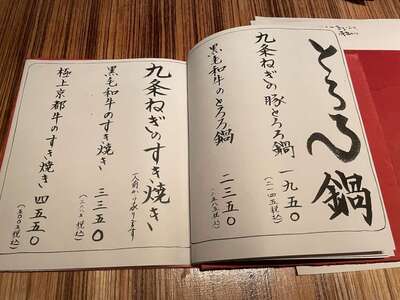 とろろ鍋
九条ねぎの豚とろろ鍋 一九五〇
(二一四五税込)
黒毛和牛のとろろ鍋 二三五〇
(二五八五税込)
九条ねぎのすき焼き
一人前から承ります
黒毛和牛のすき焼き 三三五〇
極上京都牛のすき焼き 四五五〇
(五〇〇五税込)